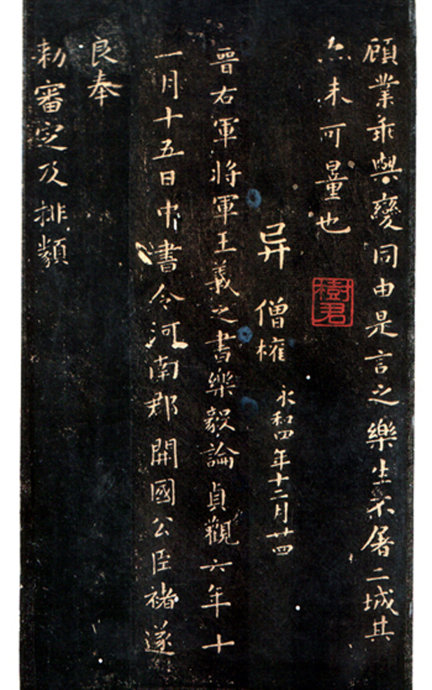 顧業乖與變同由是言之樂生不屠二城其
亦未可量也
异 僧權
永和四年十二月廿四
樹君
晉右軍將軍王羲之書樂毅論貞觀六年十
一月十五日中書令河南郡開國公臣褚遂
良奉
勑審定及排類